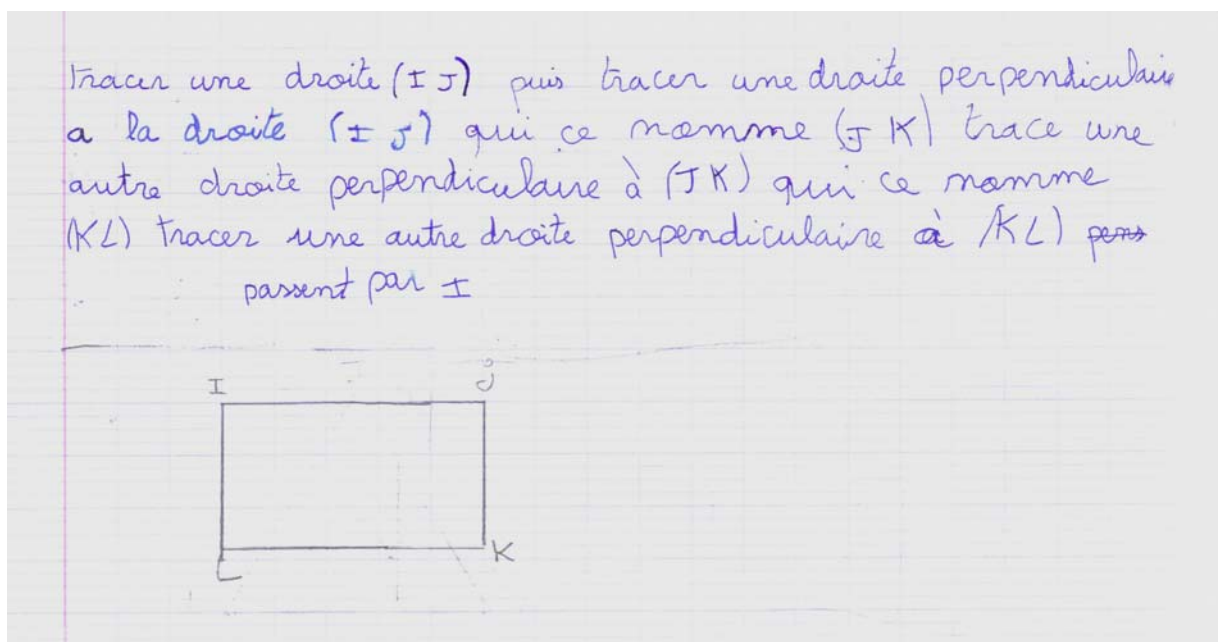 tracer une droite (I J) puis tracer une draite perpendiculaire
a la droite (I J) qui ce nomme (J K) trace une
autre droite perpendiculaire à (JK) qui ce nomme
(KL) tracer une autre droite perpendiculaire à (KL) pens
passent par I
I J
L K